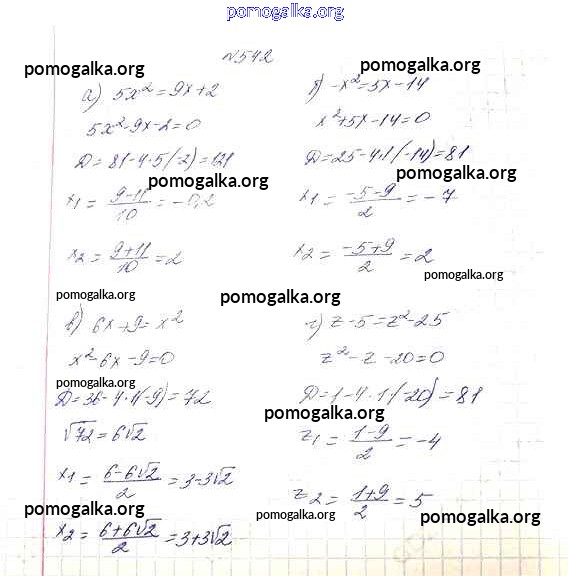 pomogalka.org
№542
pomogalka.org
pomogalka.org
а) 5x² = 9x + 2
5x² - 9x - 2 = 0
D = 81 - 4·5(-2) = 121
pomogalka.org
x₁ = (9-11)/10 = -0,2
x₂ = (9+11)/10 = 2
pomogalka.org
б) -x² = 5x - 14
pomogalka.org
x² + 5x - 14 = 0
D = 25 - 4·1(-14) = 81
pomogalka.org
x₁ = (-5-9)/2 = -7
x₂ = (-5+9)/2 = 2
pomogalka.org
pomogalka.org
в) 6x + 9 = x²
x² - 6x - 9 = 0
pomogalka.org
D = 36 - 4·1(-9) = 72
√72 = 6√2
x₁ = (6-6√2)/2 = 3-3√2
pomogalka.org
x₂ = (6+6√2)/2 = 3+3√2
г) z - 5 = z² - 25
z² - z - 20 = 0
D = 1 - 4·1(-20) = 81
pomogalka.org
z₁ = (1-9)/2 = -4
z₂ = (1+9)/2 = 5
pomogalka.org
pomogalka.org